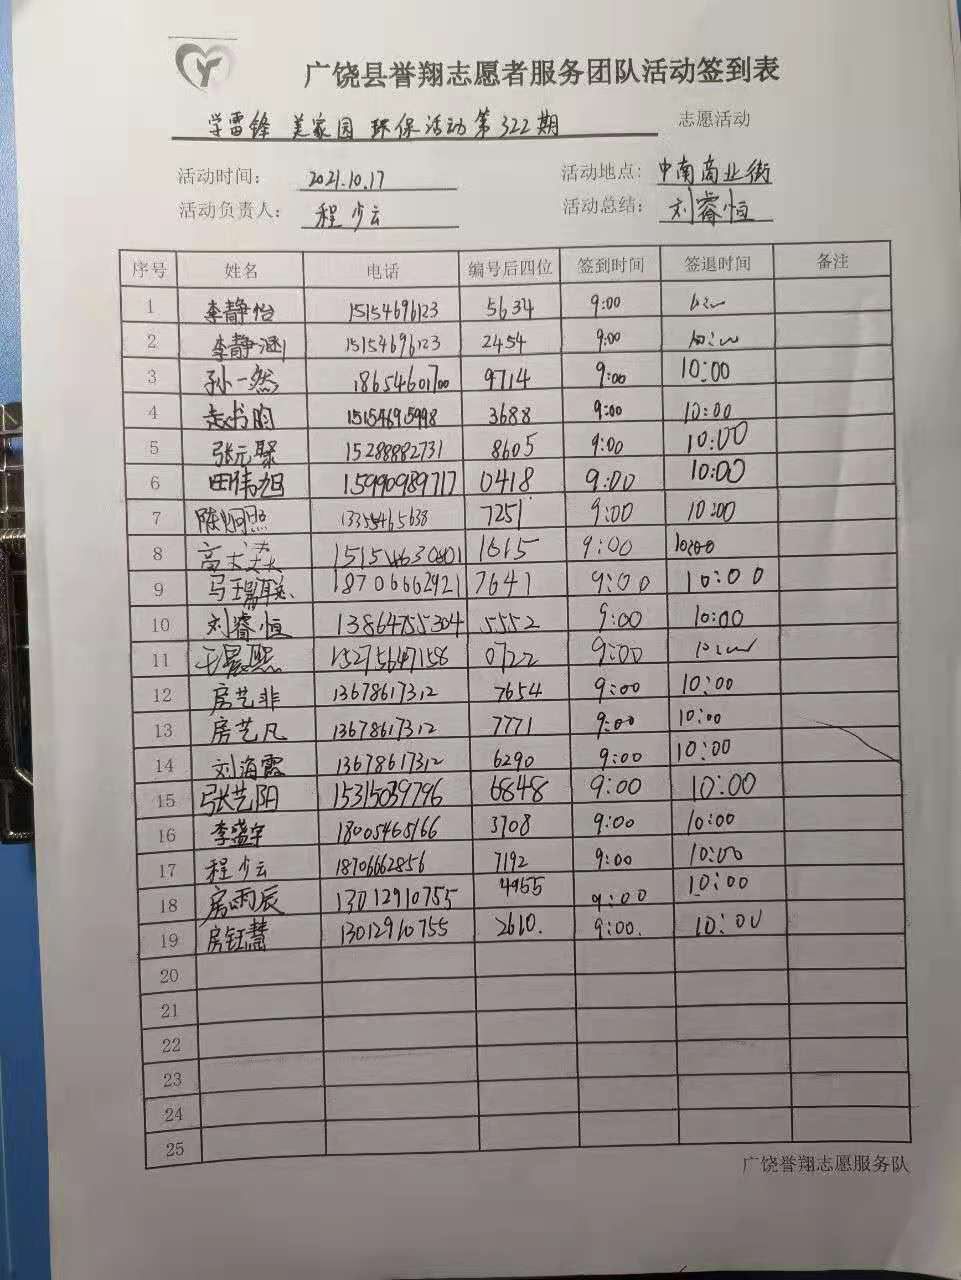 广饶县誉翔志愿者服务团队活动签到表
学雷锋 美家园 环保活动第322期 志愿活动
活动时间: 2021.10.17 活动地点: 中南商业街
活动负责人: 程少云 活动总结: 刘睿恒
序号 姓名 电话 编号后四位 签到时间 签退时间 备注
1 李静怡 15154696123 5634 9:00
2 李静涵 15154696123 2454 9:00
3 孙一然 18654601700 9714 9:00 10:00
4 15154695998 3688 9:00 10:00
5 15288882731 8605 9:00 10:00
6 田伟旭 15990989717 0418 9:00 10:00
7 7251 9:00 10:00
8 1615 9:00 10:00
9 18706662921 7641 9:00 10:00
10 刘睿恒 13864755304 5552 9:00 10:00
11 15275647158 0722 9:00
12 房艺非 13678617312 7654 9:00 10:00
13 房艺凡 13678617312 7771 9:00 10:00
14 刘海霞 13678617312 6290 9:00 10:00
15 张艺阳 15315039796 6848 9:00 10:00
16 李盛宇 18005465166 3708 9:00 10:00
17 程少云 18706662856 7192 9:00 10:00
18 房雨辰 13012910755 4955 9:00 10:00
19 房钰慧 13012910755 2610. 9:00. 10:00
20
21
22
23
24
25
广饶誉翔志愿服务队